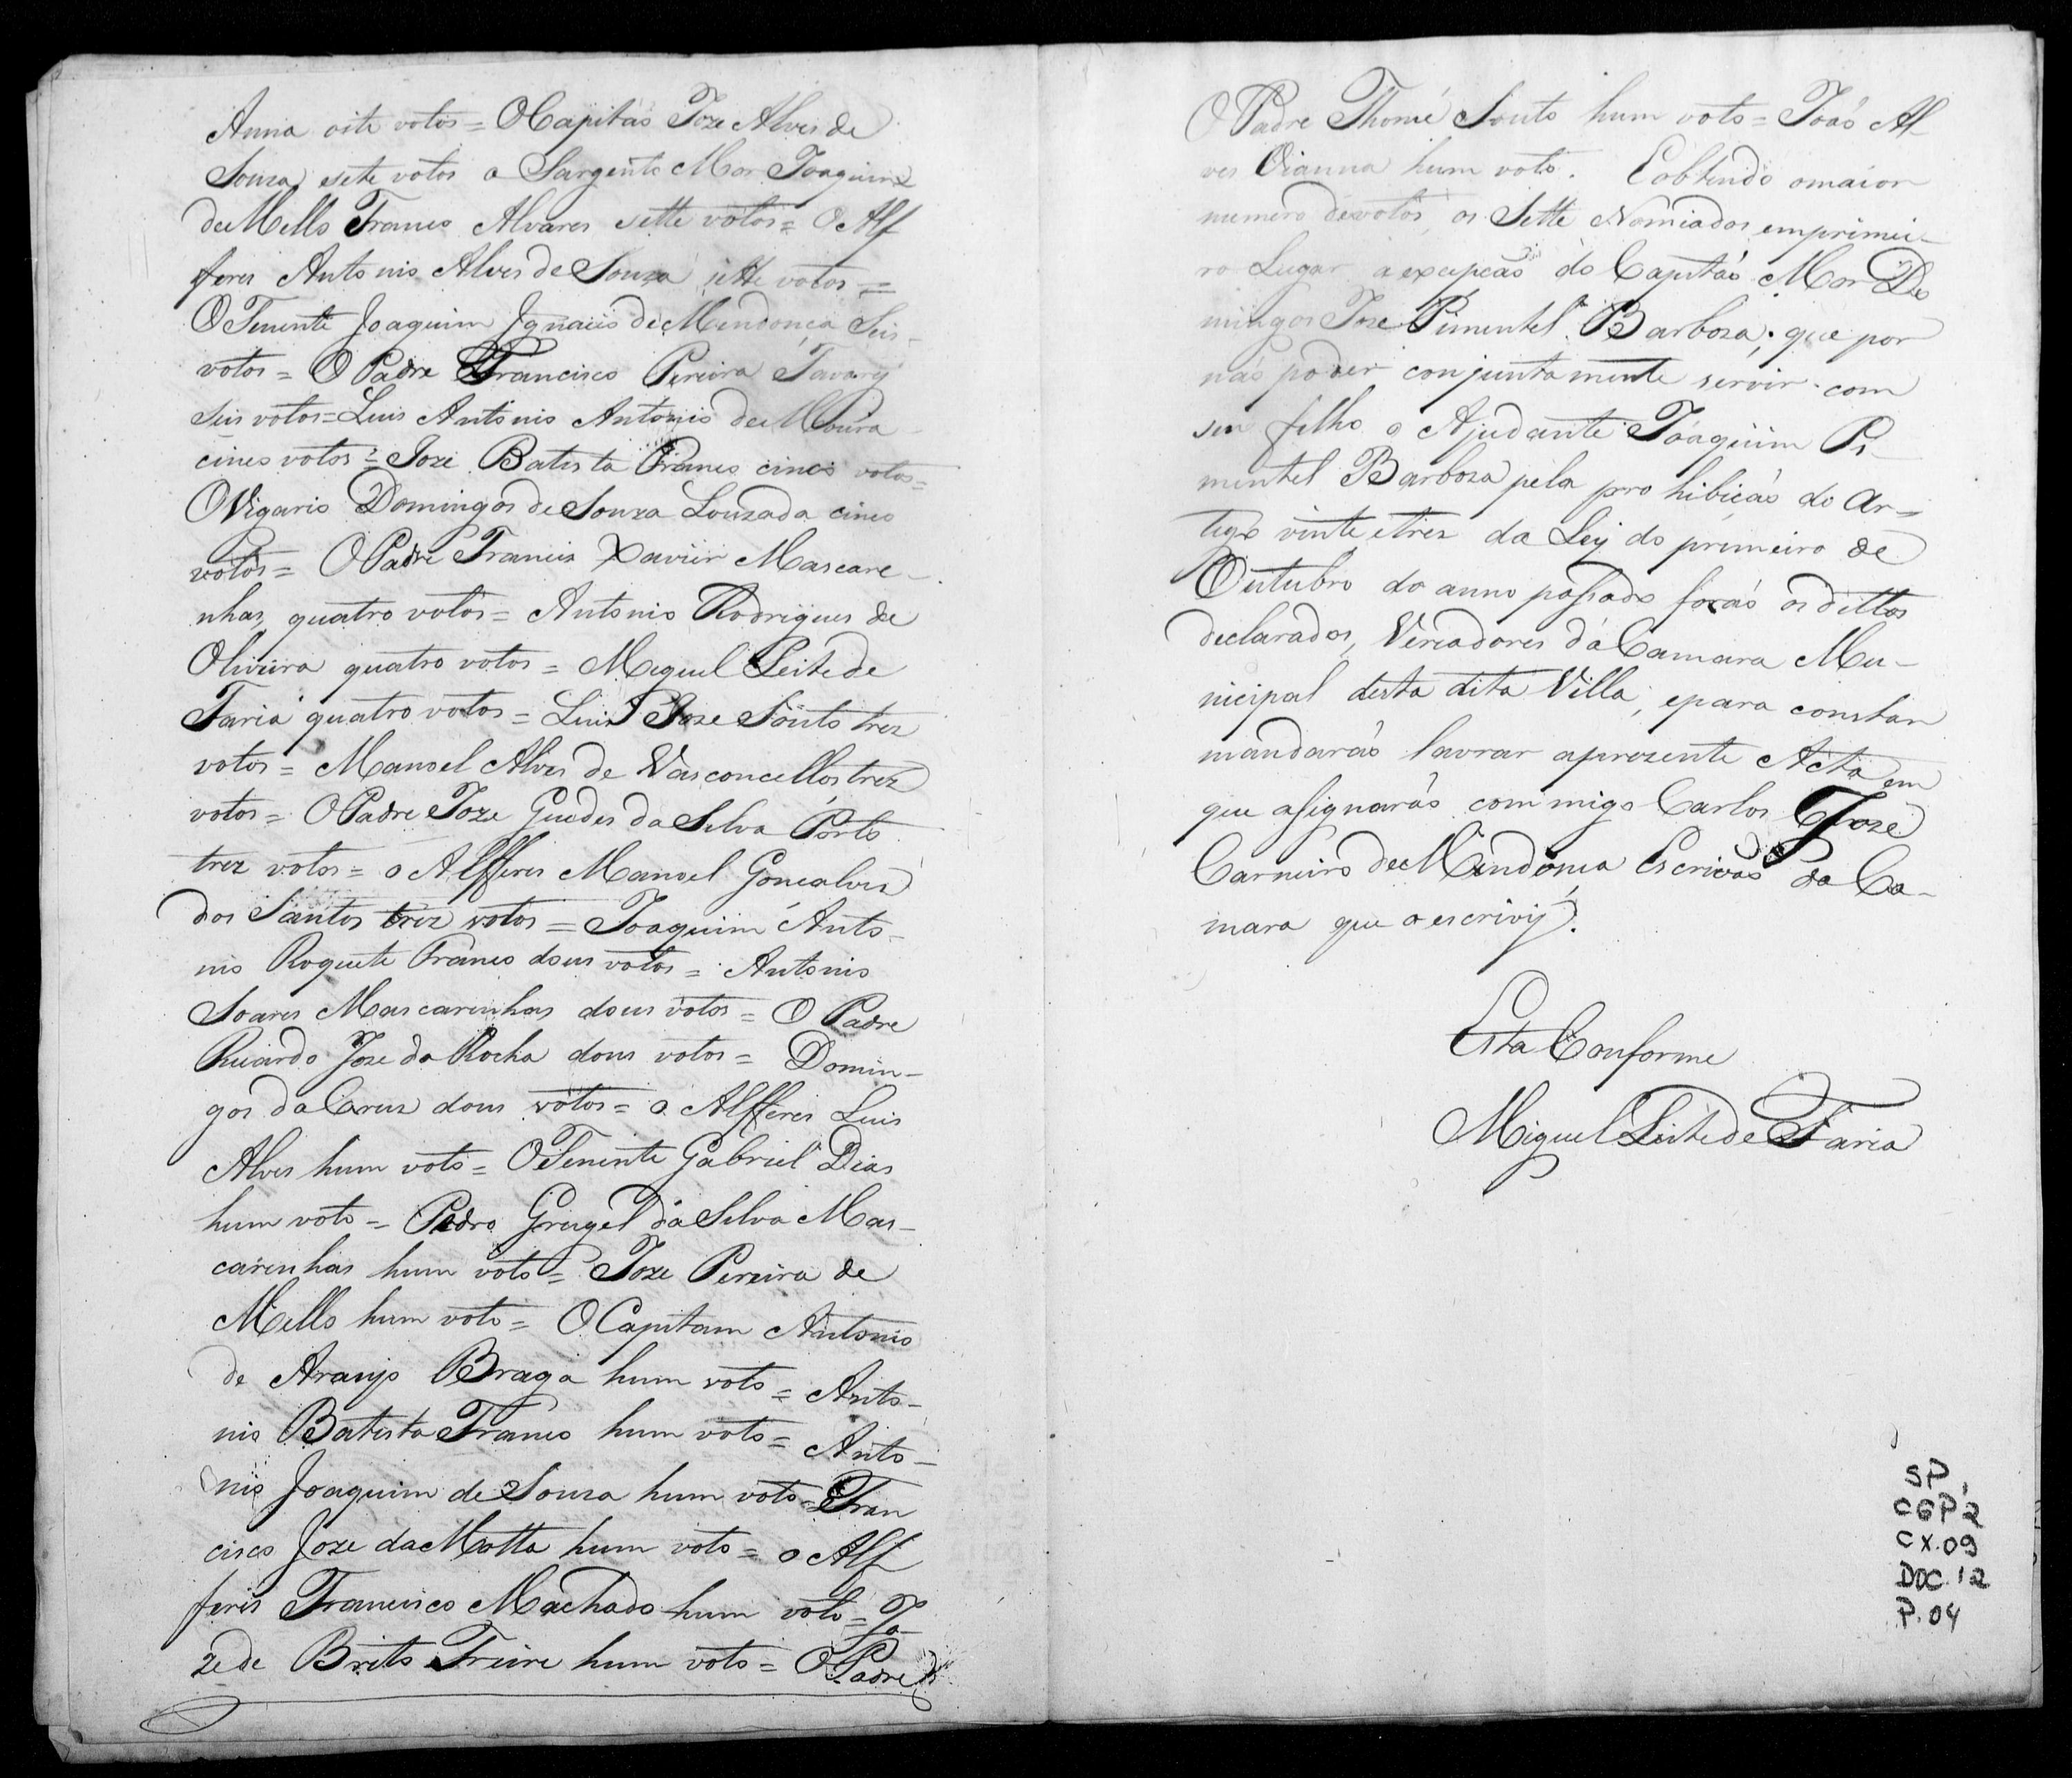 Anna oito votos = O Capitaõ Joze Alves de
Souza, sete votos o Sargento Mor Joaquim
de Mello Franco Alvares sette votos = O Alf
feres Antonio Alves de Souza sette votos =
O Tenente Joaquim Ignacio de Mendonça Seis
votos = O Padre Francisco Pereira Tavares
seis votos = Luis Antonio Antonio de Moura
cinco votos = Joze Batista Franco cinco votos =
O Vigario Domingos de Souza Louzada cinco
votos = O Padre Francis Xavier Mascare-
nhas, quatro votos = Antonio Rodrigues de
Oliveira quatro votos = Meguel Leite de
Faria quatro votos = Luis Joze Souto trez
votos = Manoel Alves de Vasconcellos trez
votos = O Padre Joze Guedes da Silva Porto
trez votos = o Alfferes Manoel Goncalves
dos Santos trez votos = Joaquim Anto-
nio Roquete Franco dous votos = Antonio
Soares Mascarenhas dous votos = O Padre
Ricardo Joze da Rocha dous votos = Domin-
gos da Cruz dous votos = o Alfferes Luis
Alves hum voto = O Tenente Gabriel Dias
hum voto = Pedro Grugel da Silva Mas-
carenhas hum voto = Joze Pereira de
Mello hum voto = O Capitam Antonio
de Araujo Braga hum voto = Anto-
nio Batista Franco hum voto = Anto-
nio Joaquim de Souza hum voto = Fran
cisco Joze da Motta hum voto = o Alf
feres Francisco Machado hum voto = Jo-
ze de Brito Freire hum voto = O Padre
O Padre Thomé Souto hum voto = Joaõ Al
ves Vianna hum voto. E obtendo o maior
numero de votos, os Sette Nomiados em primei-
ro Lugar a excepcaõ do Capitaõ Mor Do
mingos Joze Pimentel Barboza; que por
naõ poder conjuntamente servir com
seu filho o Ajudante Joaquim Pi-
mentel Barboza pela prohibicaõ do Ar-
tigo vinte e trez da Ley do primeiro de
Outubro do anno passado foraõ os dittos
declarados, Vereadores da Camara Mu-
nicipal desta dita Villa, e para constar
mandaraõ lavrar a prezente Acta em
que asignaraõ commigo Carlos Joze
Carneiro de Mendonca Escrivaõ da Ca-
mara que o escrivy.
Esta Conforme
Miguel Leite de Faria
SP,
CGP2
CX.09
DOC.12
P.04